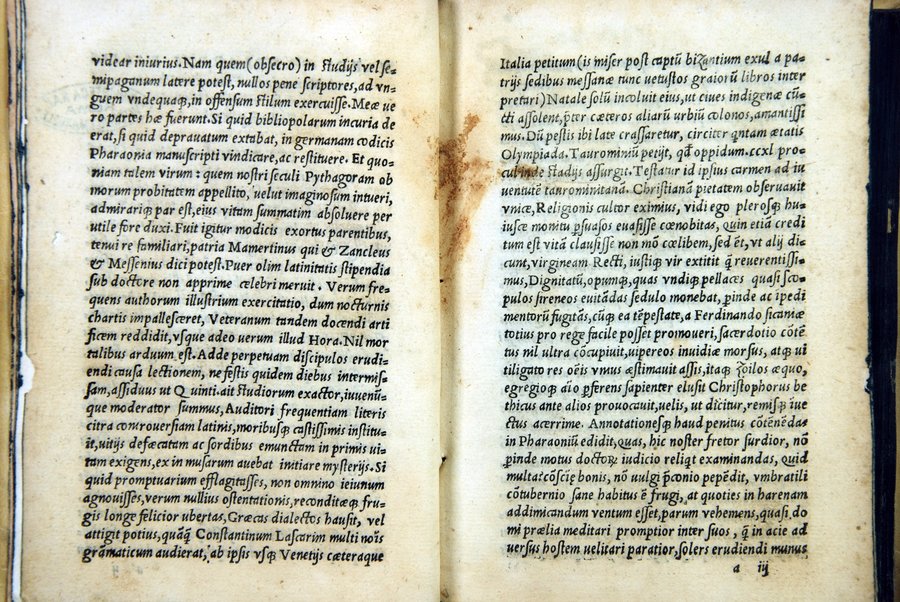 videar iniurius. Nam quem (obsecro) in studijs vel se-
mipaganum latere potest, nullos pene scriptores, ad vn-
guem vndequaq;, in offensum stilum exercuisse. Meæ ve
ro partes hæ fuerunt. Si quid bibliopolarum incuria de
erat, si quid deprauatum extabat, in germanam codicis
Pharaonia manuscripti vindicare, ac restituere. Et quo-
niam talem virum: quem nostri seculi Pythagoram ob
morum probitatem appellito, velut imaginosum intueri,
admirariq; par est, eius vitam summatim absoluere per
utile fore duxi. Fuit igitur modicis exortus parentibus,
tenui re familiari, patria Mamertinus qui & Zancleus
& Messenius dici potest. Puer olim latinitatis stipendia
sub doctore non apprime celebri meruit. Verum fre-
quens authorum illustrium exercitatio, dum nocturnis
chartis impallesceret, Veteranum tandem docendi arti
ficem reddidit, vsque adeo uerum illud Hora. Nil mor
talibus arduum est. Adde perpetuam discipulos erudi-
endi causa lectionem, ne festis quidem diebus intermis-
sam, assiduus ut Quinti. ait studiorum exactor, iuuenū-
que moderator summus, Auditori frequentiam literis
citra controuersiam latinis, moribusq; castissimis institu-
it, uitijs defæcatam ac sordibus emunctam in primis ui-
tam exigens, ex in musarum auebat initiare mysterijs. Si
quid promptuarium efflagitasses, non omnino ieiunum
agnouisses, verum nullius ostentationis, reconditæq; fru-
gis longe felicior ubertas, Græcas dialectos hausit, vel
attigit potius, quāq̃ Constantinum Lascarim multi noīs
grāmaticum audierat, ab ipsis vsq; Venetijs cæteraque
Italia petitum (is miser post captū bizantium exul a pa-
trijs sedibus messanæ tunc uetustos graiorū libros inter
pretari) Natale solū incoluit eius, ut ciues indigenæ cū-
cti assolent, p̱ter cæteros aliarū urbiū colonos, amantissi
mus. Dū pestis ibi late crassaretur, circiter qntam ætatis
Olympiada. Tauromíniū petijt, qd̄ oppidum. ccxl pro-
cul inde stadijs assurgit. Testatur id ipsius carmen ad iu
uentutē taurominitanā. Christianā pietatem obseruauit
vnicæ, Religionis cultor eximius, vidi ego plerosq; hu-
iusce monitu p̱suasos euasisse cœnobitas, quin etiā credi
tum est vitā clausisse non mō cœlibem, sed ēt, vt alij di-
cunt, virgineam Recti, iustiq; vir extitit q̃ reuerentissi-
mus, Dignitatū, opumq;, quas vndiq; pellaces quasi sco-
pulos sireneos euitādas sedulo monebat, p̱inde ac ipedi
mentorū fugitās, cūq; ea tēpestate, a Ferdinando sicaniæ
totius pro rege facile posset promoueri, sacerdotio cōtē-
tus nil ultra cōcupiuit, uipereos inuidiæ morsus, atq; ui
tiligato res oēis vnius æstimauit assis, itaq; zoilos æquo,
egregioq; aīo p̱ferens sapienter elusit Christophorus be
thicus ante alios prouocauit, uelis, ut dicitur, remisq; iuue
ctus acerrime. Annotationesq; haud penitus cōtēnēdas
in Pharaoniū edidit, quas, hic noster fretor surdior, nō
p̱inde motus doctoꝝ iudicio reliqt examinandas, quid
multa: cōscię bonis, nō uulgi p̱conio pepēdit, vmbratili
cōtubernio sane habitus ē frugi, at quoties in harenam
addimicandum ventum esset, parum vehemens, quasi, do
mi prælia meditari promptior inter suos, q̃ in acie ad
uersus hostem uelitari paratior, solers erudiendi munus
a iij